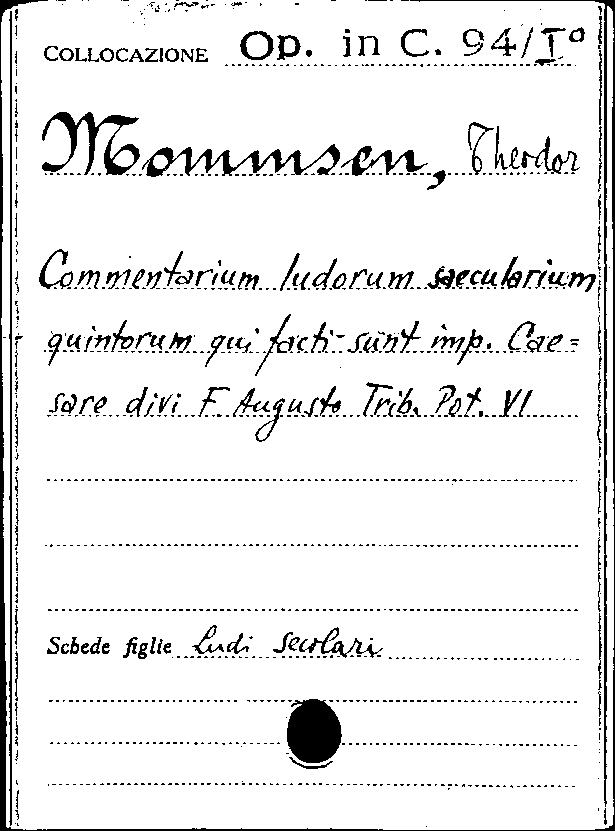 COLLOCAZIONE Op. in C. 94/Iº
Mommsen, Theodor
Commentarium ludorum saecularium
quintorum qui facti sunt imp. Cae=
sare divi F. Augusto Trib. Pot. VI
Schede figlie Ludi secolari